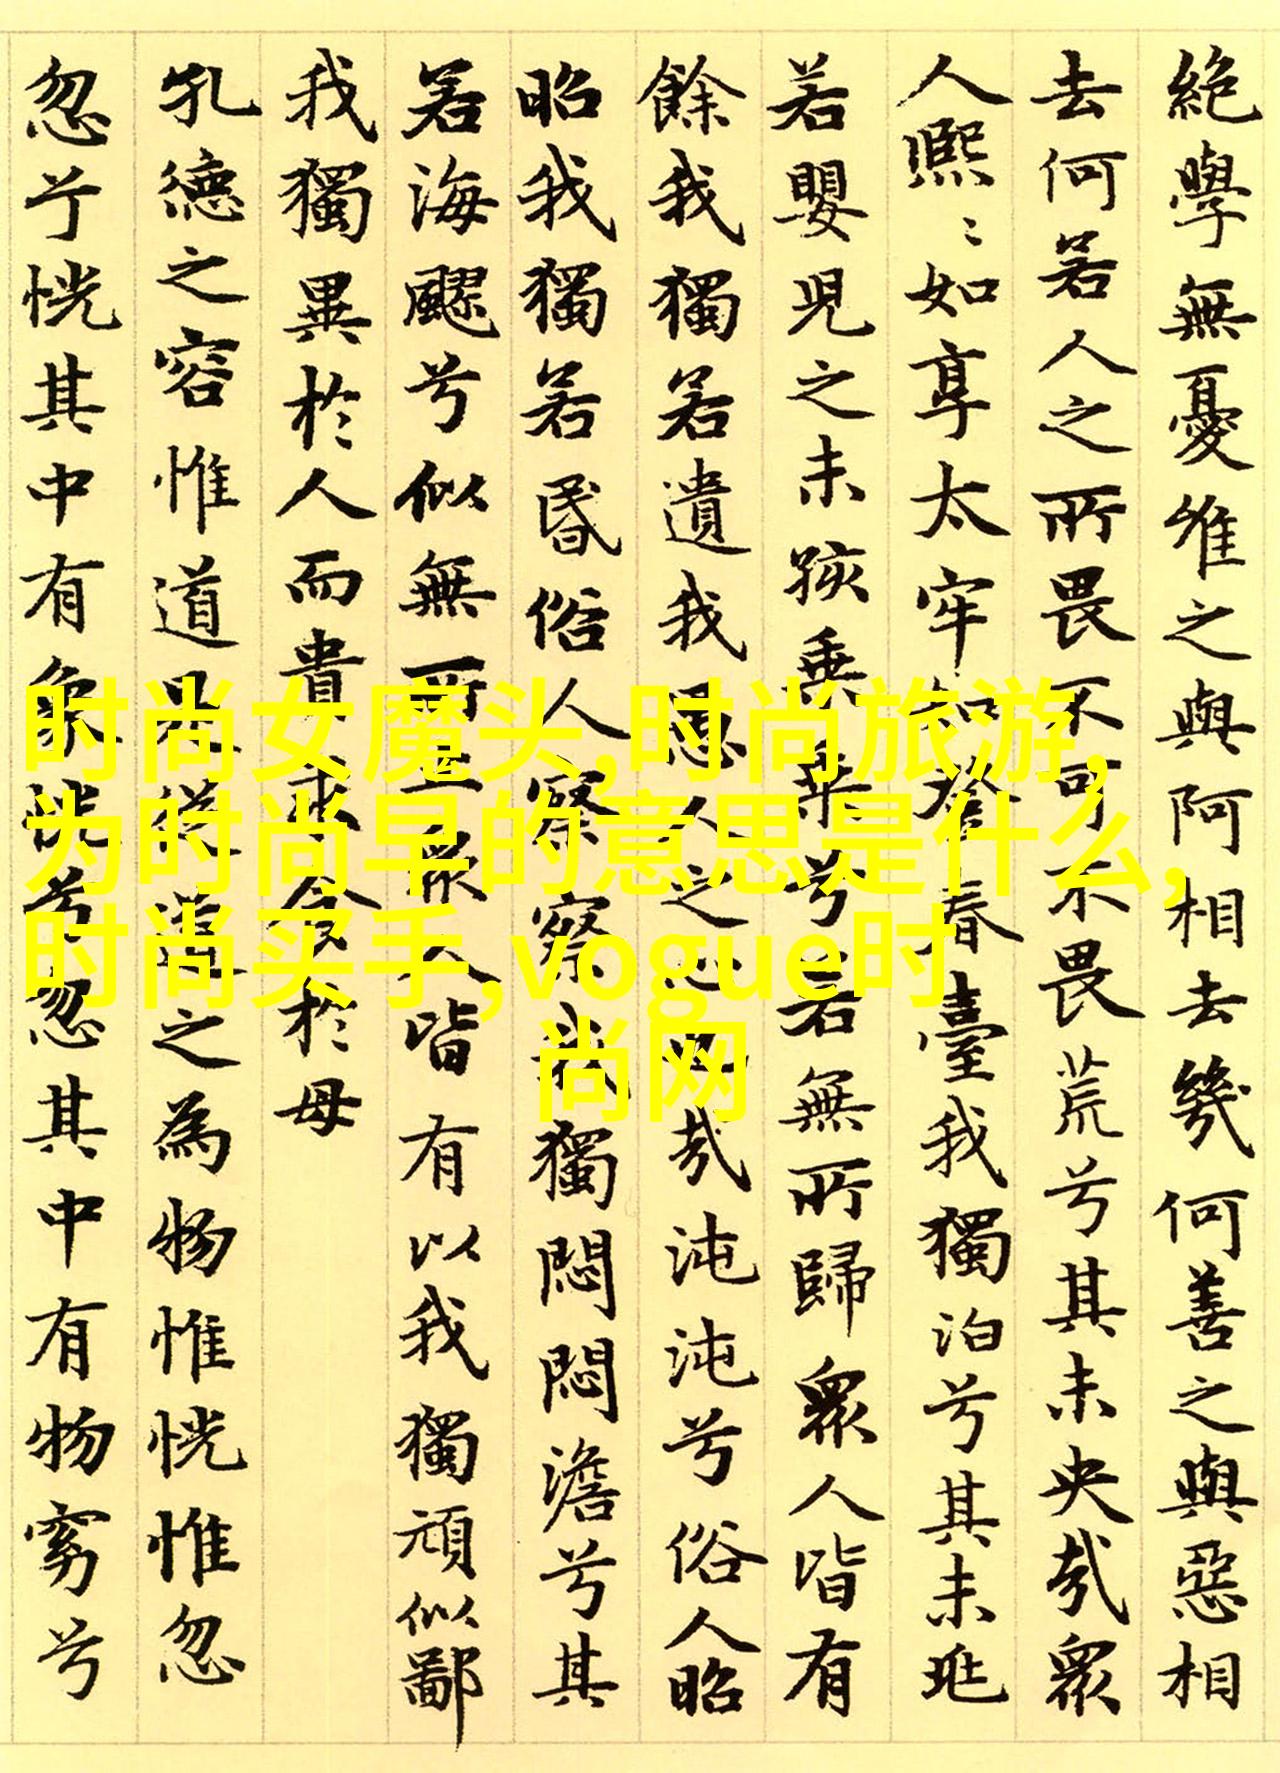 絶學無憂唯之與阿相去幾何善之與惡相
去何若人之所畏不可不畏荒兮其未央哉眾
人熙〻如享太牢如登春臺我獨泊兮其未兆
若嬰兒之未孩乗乗兮若無所歸眾人皆有
餘我獨若遺我愚人之心也哉沌沌兮俗人昭
昭我獨若昏俗人察察我獨悶悶澹兮其
若海飂兮似無所止眾人皆有以我獨頑似鄙
我獨異於人而貴求食於母
孔德之容惟道是從道之為物惟恍惟忽
忽兮恍其中有象恍兮忽其中有物窈兮
时尚女魔头,时尚旅游,
为时尚早的意思是什么,
时尚买手,vogue时
尚网